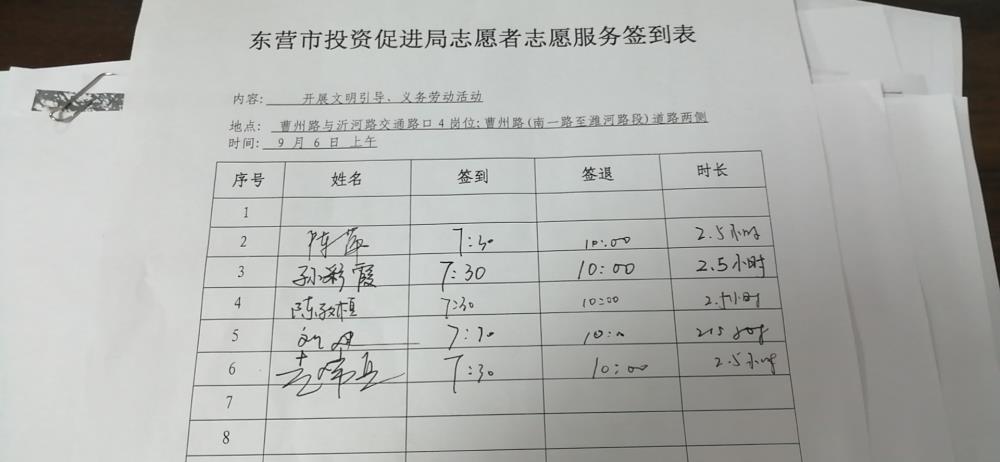 东营市投资促进局志愿者志愿服务签到表
内容: 开展文明引导、义务劳动活动
地点: 曹州路与沂河路交通路口4岗位;曹州路(南一路至潍河路段)道路两侧
时间: 9 月 6 日 上午
序号 姓名 签到 签退 时长
1
2 陈萍 7:30 10:00 2.5小时
3 孙彩霞 7:30 10:00 2.5小时
4 陈 7:30 10:00 2.5小时
5 7:30 10:0 2.5小时
6 7:30 10:00 2.5小时
7
8